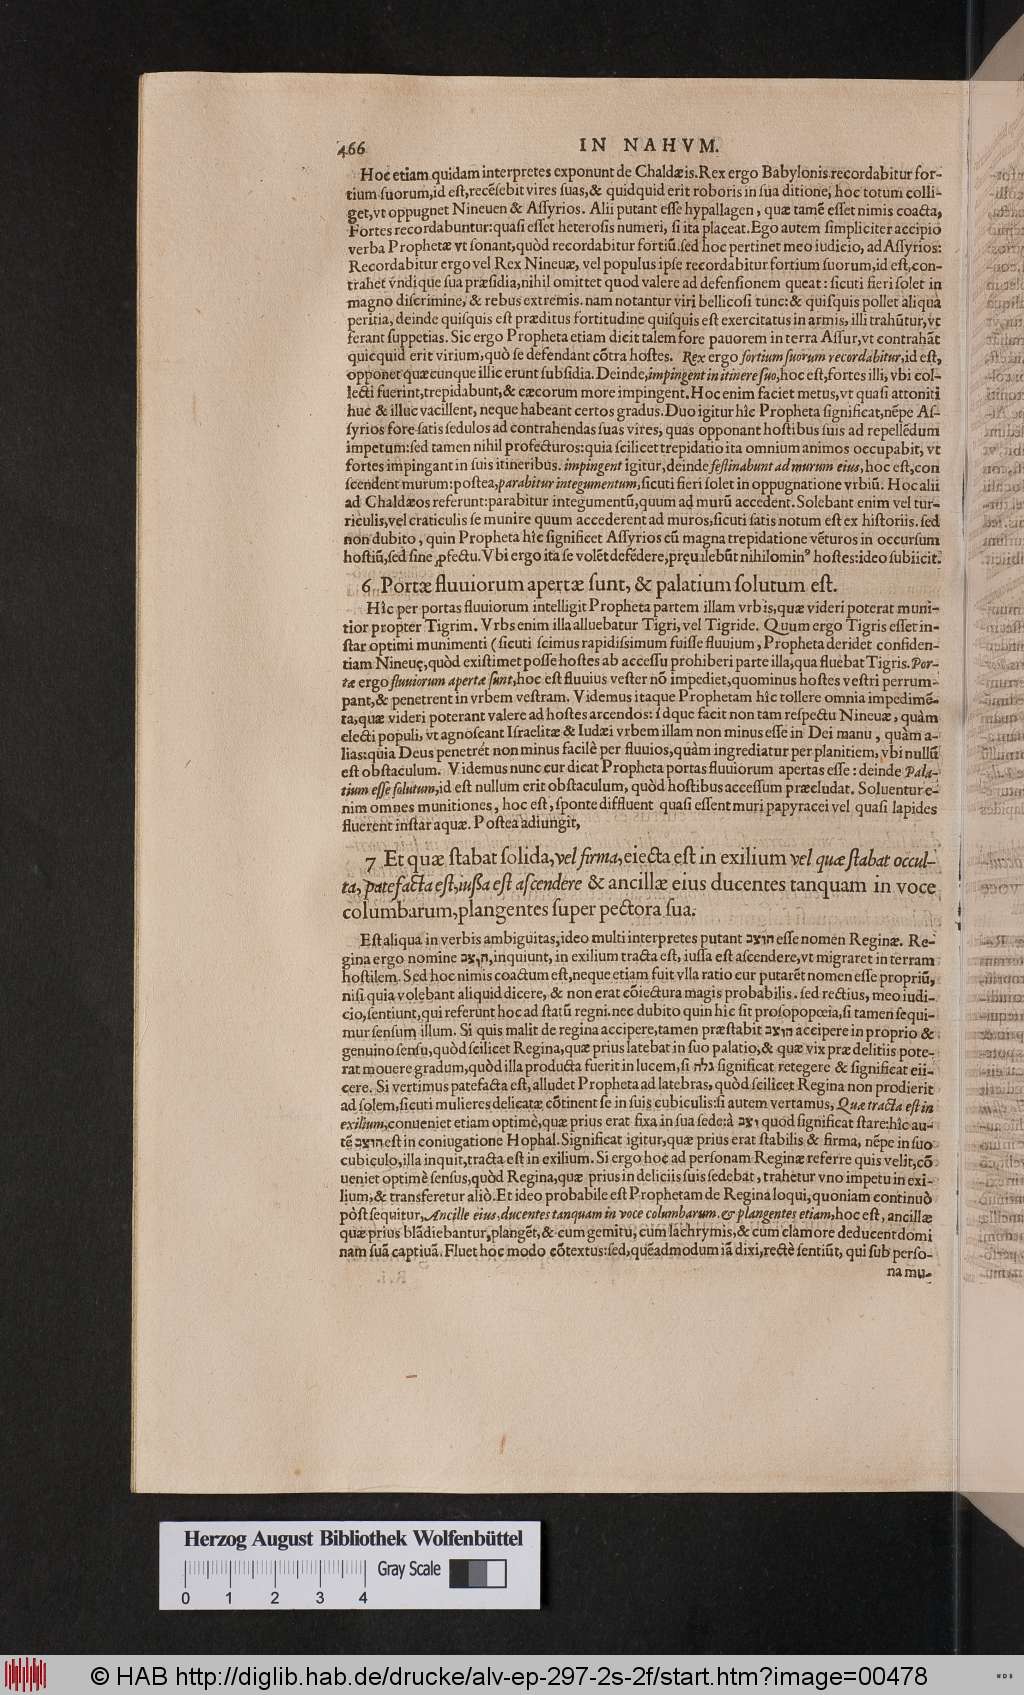 466 IN NAHVM.
Hoc etiam quidam interpretes exponunt de Chaldæis. Rex ergo Babylonis recordabitur for-
tium suorum, id est, recẽsebit vires suas, & quidquid erit roboris in sua ditione, hoc totum colli-
get, vt oppugnet Nineuen & Assyrios. Alii putant esse hypallagen, quæ tamẽ esset nimis coacta,
Fortes recordabuntur: quasi esset heterosis numeri, si ita placeat. Ego autem simpliciter accipio
verba Prophetæ vt sonant, quòd recordabitur fortiũ. sed hoc pertinet meo iudicio, ad Assyrios:
Recordabitur ergo vel Rex Nineuæ, vel populus ipse recordabitur fortium suorum, id est, con-
trahet vndique sua præsidia, nihil omittet quod valere ad defensionem queat: sicuti fieri solet in
magno discrimine, & rebus extremis. nam notantur viri bellicosi tunc: & quisquis pollet aliqua
peritia, deinde quisquis est præditus fortitudine quisquis est exercitatus in armis, illi trahũtur, vt
ferant suppetias. Sic ergo Propheta etiam dicit talem fore pauorem in terra Assur, vt contrahãt
quicquid erit virium, quò se defendant cõtra hostes. Rex ergo fortium suorum recordabitur, id est,
opponet quæcunque illic erunt subsidia. Deinde, impingent in itinere suo, hoc est, fortes illi, vbi col-
lecti fuerint, trepidabunt, & cæcorum more impingent. Hoc enim faciet metus, vt quasi attoniti
huc & illuc vacillent, neque habeant certos gradus. Duo igitur hîc Propheta significat, nẽpe As-
syrios fore satis sedulos ad contrahendas suas vires, quas opponant hostibus suis ad repellẽdum
impetum: sed tamen nihil profecturos: quia scilicet trepidatio ita omnium animos occupabit, vt
fortes impingant in suis itineribus. impingent igitur, deinde festinabunt ad murum eius, hoc est, con
scendent murum: postea, parabitur integumentum, sicuti fieri solet in oppugnatione vrbiũ. Hoc alii
ad Chaldæos referunt: parabitur integumentũ, quum ad murũ accedent. Solebant enim vel tur-
riculis, vel craticulis se munire quum accederent ad muros, sicuti satis notum est ex historiis. sed
non dubito, quin Propheta hîc significet Assyrios cũ magna trepidatione vẽturos in occursum
hostiũ, sed sine ꝓfectu. Vbi ergo ita se volẽt defẽdere, pręualebũt nihilominꝰ hostes: ideo subiicit.
6 Portæ fluuiorum apertæ sunt, & palatium solutum est.
Hîc per portas fluuiorum intelligit Propheta partem illam vrbis, quæ videri poterat muni-
tior propter Tigrim. Vrbs enim illa alluebatur Tigri, vel Tigride. Quum ergo Tigris esset in-
star optimi munimenti (sicuti scimus rapidissimum fuisse fluuium, Propheta deridet confiden-
tiam Nineuę, quòd existimet posse hostes ab accessu prohiberi parte illa, qua fluebat Tigris. Por-
tæ ergo fluuiorum apertæ sunt, hoc est fluuius vester nõ impediet, quominus hostes vestri perrum-
pant, & penetrent in vrbem vestram. Videmus itaque Prophetam hîc tollere omnia impedimẽ-
ta, quæ videri poterant valere ad hostes arcendos: idque facit non tam respectu Nineuæ, quàm
electi populi, vt agnoscant Israelitæ & Iudæi vrbem illam non minus esse in Dei manu, quàm a-
lias: quia Deus penetrét non minus facilè per fluuios, quàm ingrediatur per planitiem, vbi nullũ
est obstaculum. Videmus nunc cur dicat Propheta portas fluuiorum apertas esse: deinde Pala-
tium esse solutum, id est nullum erit obstaculum, quòd hostibus accessum præcludat. Soluentur e-
nim omnes munitiones, hoc est, sponte diffluent quasi essent muri papyracei vel quasi lapides
fluerent instar aquæ. Postea adiungit,
7 Et quæ stabat solida, vel firma, eiecta est in exilium vel quæ stabat occul-
ta, patefacta est, iussa est ascendere & ancillæ eius ducentes tanquam in voce
columbarum, plangentes super pectora sua.
Est aliqua in verbis ambiguitas, ideo multi interpretes putant הוצב esse nomen Reginæ. Re-
gina ergo nomine הוצב, inquiunt, in exilium tracta est, iussa est ascendere, vt migraret in terram
hostilem. Sed hoc nimis coactum est, neque etiam fuit vlla ratio cur putarẽt nomen esse propriũ,
nisi quia volebant aliquid dicere, & non erat cõiectura magis probabilis. sed rectius, meo iudi-
cio, sentiunt, qui referunt hoc ad statũ regni. nec dubito quin hîc sit prosopopœia, si tamen sequi-
mur sensum illum. Si quis malit de regina accipere, tamen præstabit הוצב accipere in proprio &
genuino sensu, quòd scilicet Regina, quæ prius latebat in suo palatio, & quæ vix præ delitiis pote-
rat mouere gradum, quòd illa producta fuerit in lucem, si גלה significat retegere & significat eii-
cere. Si vertimus patefacta est, alludet Propheta ad latebras, quòd scilicet Regina non prodierit
ad solem, sicuti mulieres delicatæ cõtinent se in suis cubiculis: si autem vertamus, Quæ tracta est in
exilium, conueniet etiam optimè, quæ prius erat fixa in sua sede: à יצב quod significat stare: hîc au-
tẽ הוצב est in coniugatione Hophal. Significat igitur, quæ prius erat stabilis & firma, nẽpe in suo
cubiculo, illa inquit, tracta est in exilium. Si ergo hoc ad personam Reginæ referre quis velit, cõ
ueniet optimè sensus, quòd Regina, quæ prius in deliciis suis sedebat, trahetur vno impetu in exi-
lium, & transferetur aliò. Et ideo probabile est Prophetam de Regina loqui, quoniam continuò
pòst sequitur, Ancillæ eius, ducentes tanquam in voce columbarum, & plangentes etiam, hoc est, ancillæ
quæ prius blãdiebantur, plangẽt, & cum gemitu, cum lachrymis, & cum clamore deducent domi
nam suã captiuã. Fluet hoc modo cõtextus: sed, quẽadmodum iã dixi, rectè sentiũt, qui sub perso-
na mu-
Herzog August Bibliothek Wolfenbüttel
Gray Scale
0 1 2 3 4
© HAB http://diglib.hab.de/drucke/alv-ep-297-2s-2f/start.htm?image=00478